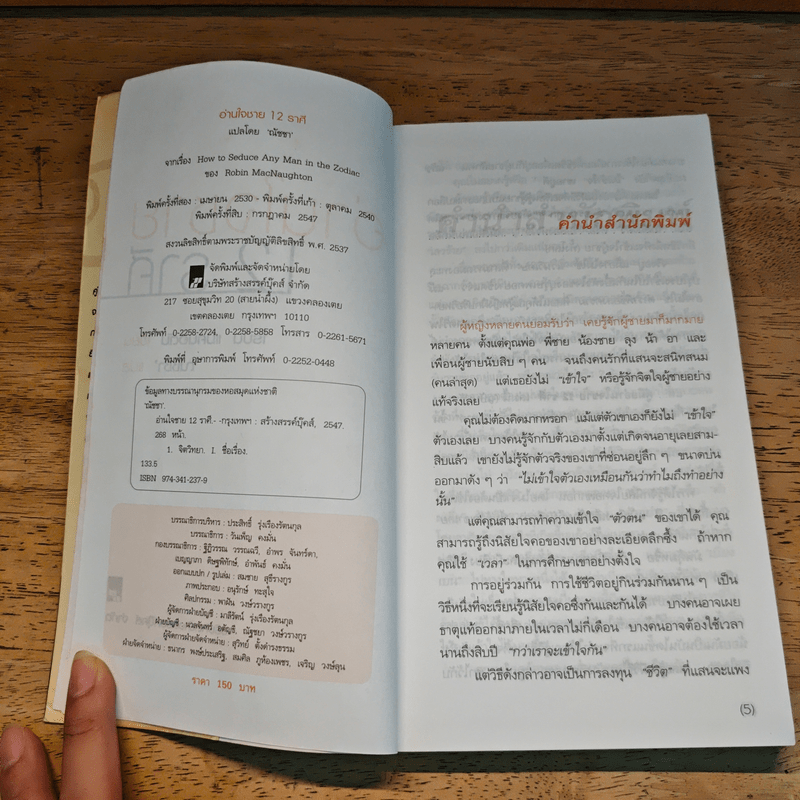 อ่านใจชาย 12 ราศี
แปลโดย 'ณัชชา'
จากเรื่อง How to Seduce Any Man in the Zodiac
ของ Robin MacNaughton
พิมพ์ครั้งที่สอง : เมษายน 2530 - พิมพ์ครั้งที่เก้า : ตุลาคม 2540
พิมพ์ครั้งที่สิบ : กรกฎาคม 2547
สงวนลิขสิทธิ์ตามพระราชบัญญัติลิขสิทธิ์ พ.ศ. 2537
จัดพิมพ์และจัดจำหน่ายโดย
บริษัทสร้างสรรค์บุ๊คส์ จำกัด
217 ซอยสุขุมวิท 20 (สายน้ำผึ้ง) แขวงคลองเตย
เขตคลองเตย กรุงเทพฯ 10110
โทรศัพท์ 0-2258-2724, 0-2258-5858 โทรสาร 0-2261-5671
พิมพ์ที่ อุษาการพิมพ์ โทรศัพท์ 0-2252-0448
ข้อมูลทางบรรณานุกรมของหอสมุดแห่งชาติ
'ณัชชา'.
อ่านใจชาย 12 ราศี.- -กรุงเทพฯ : สร้างสรรค์บุ๊คส์, 2547.
268 หน้า.
1. จิตวิทยา. I. ชื่อเรื่อง.
133.5
ISBN 974-341-237-9
บรรณาธิการบริหาร : ประสิทธิ์ รุ่งเรืองรัตนกุล
บรรณาธิการ : วันเพ็ญ คงมั่น
กองบรรณาธิการ : ฐิติวรรณ วรรณณวี, อำพร จันทร์ตา,
เบญญาภา ดิษฐพิทักษ์, อำพันธ์ คงมั่น
ออกแบบปก / รูปเล่ม : สมชาย สุธีรางกูร
ภาพประกอบ : อนุรักษ์ ทะสุใจ
ศิลปกรรม : พาฝัน วงษ์วรางกูร
ผู้จัดการฝ่ายบัญชี : มาลีรัตน์ รุ่งเรืองรัตนกุล
ผู้จัดการฝ่ายจัดจำหน่าย : สุวิทย์ ตั้งดำรงธรรม
ราคา 150 บาท
คำนำสำนักพิมพ์
ผู้หญิงหลายคนยอมรับว่า เคยรู้จักผู้ชายมาก็มากมาย
หลายคน ตั้งแต่คุณพ่อ พี่ชาย น้องชาย ลุง น้า อา และ
เพื่อนผู้ชายนับสิบ ๆ คน จนถึงคนรักที่แสนจะสนิทสนม
(คนล่าสุด) แต่เธอยังไม่ "เข้าใจ" หรือรู้จักจิตใจผู้ชายอย่าง
แท้จริงเลย
คุณไม่ต้องคิดมากหรอก แม้แต่ตัวเขาเองก็ยังไม่ "เข้าใจ"
ตัวเองเลย บางคนรู้จักกับตัวเองมาตั้งแต่เกิดจนอายุเลยสาม-
สิบแล้ว เขายังไม่รู้จักตัวจริงของเขาที่ซ่อนอยู่ลึก ๆ ขนาดบ่น
ออกมาดัง ๆ ว่า "ไม่เข้าใจตัวเองเหมือนกันว่าทำไมถึงทำอย่าง
นั้น"
แต่คุณสามารถทำความเข้าใจ "ตัวตน" ของเขาได้ คุณ
สามารถรู้ถึงนิสัยใจคอของเขาอย่างละเอียดลึกซึ้ง ถ้าหาก
คุณใช้ "เวลา" ในการศึกษาเขาอย่างตั้งใจ
การอยู่ร่วมกัน การใช้ชีวิตอยู่กินร่วมกันนาน ๆ เป็น
วิธีหนึ่งที่จะเรียนรู้นิสัยใจคอซึ่งกันและกันได้ บางคนอาจเผย
ธาตุแท้ออกมาภายในเวลาไม่กี่เดือน บางคนอาจต้องใช้เวลา
นานถึงสิบปี "กว่าเราจะเข้าใจกัน"
แต่วิธีดังกล่าวอาจเป็นการลงทุน "ชีวิต" ที่แสนจะแพง
(5)